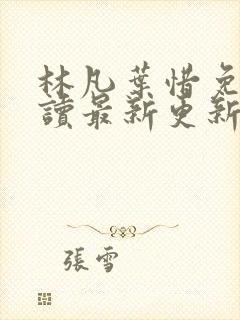 林凡葉惜免
讀最新更新
張雪